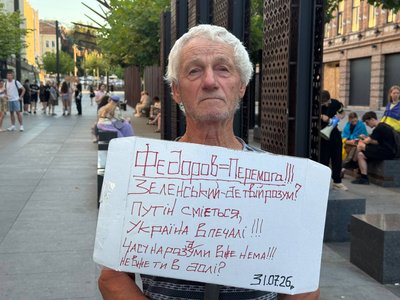 Федоров-Перемога!!!
Зеленський-де твій розум?
Путін сміється,
Україна в печалі!!!
Часу на роздуми вже нема!!!
Невже ти в долі?
31.07.26р.